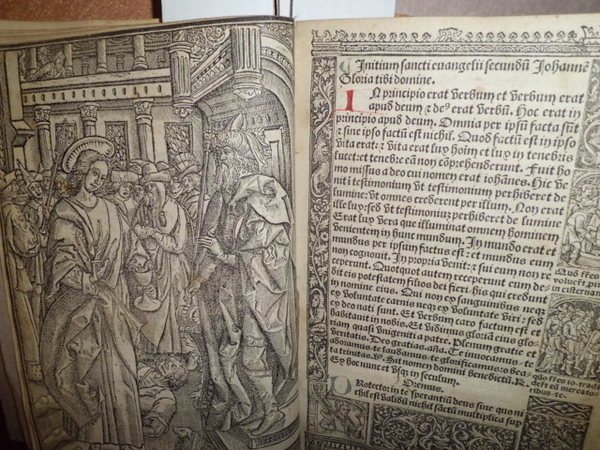 Initium sancti euangelii secundū Johannē
Gloria tibi domine.
IN principio erat verbum et verbum erat
apud deum & de⁹ erat verbū. Hoc erat in
principio apud deum. Omnia per ipsū facta sūt
& sine ipso factū est nichil. Quod factū est in ipso
vita erat: & vita erat lux hoim et lux in tenebris
lucet: et tenebre eā non cōprehenderunt. Fuit ho
mo missus a deo cui nomen erat iohānes. Hic ve
nit ī testimonium vt testimonium perhiberet de
lumine: vt omnes crederent per illum. Non erat
ille lux: sed vt testimoniuȝ perhiberet de lumine
Erat lux vera que illuminat omnem hominem
venientem in hunc mundum. In mundo erat et
mundus per ipsum factus est: et mundus eum
non cognouit. In propria venit: & sui eum non re
ceperunt. Quotquot autem receperunt eum de
dit eis potestatem filios dei fieri: his qui credunt
in nomine eius. Qui non ex sanguinibus neqȝ
ex voluntate carnis neqȝ ex voluntate viri: sed
ex deo nati sunt. Et verbum caro factum est et
habitauit in nobis. Et vidimus gloriā eius glo
riam quasi vnigeniti a patre. Plenum gratie et
veritatis. Deo gratias. aña. Te inuocamus: te
adoramus: te laudamus: te glorificamus o bea
ta trinitas. v̄. Sit nomen domini benedictū. R.
Ex hoc nunc et vsqȝ in seculum. Oremus.
PRotector in te sperantiū deus sine quo ni
chil est validū nichil sāctū multiplica sup